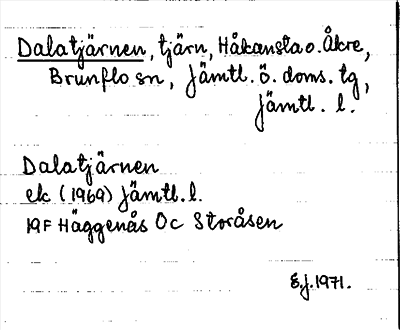 Dalatjärnen, tjärn, Håkansta o. Åkre,
Brunflo sn, Jämtl. ö. doms. tg,
Jämtl. l.
Dalatjärnen
ek (1969) Jämtl. l.
19F Häggenås Öc Storåsen
E.j. 1971.